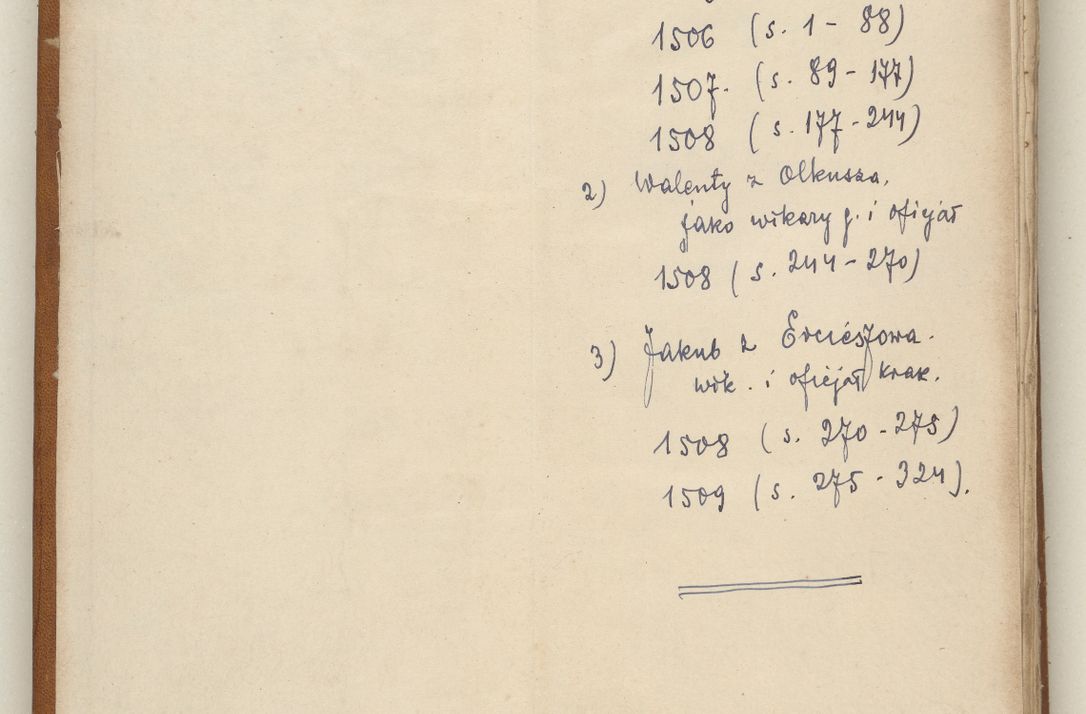 1506 (s. 1 - 88)
1507. (s. 89 - 177)
1508 (s. 177 - 244)
2) Walenty z Olkusza,
jako wikary g. i oficjał
1508 (s. 244 - 270)
3) Jakub z Erciészowa.
wik. i oficjał krak.
1508 (s. 270 - 275)
1509 (s. 275 - 324).